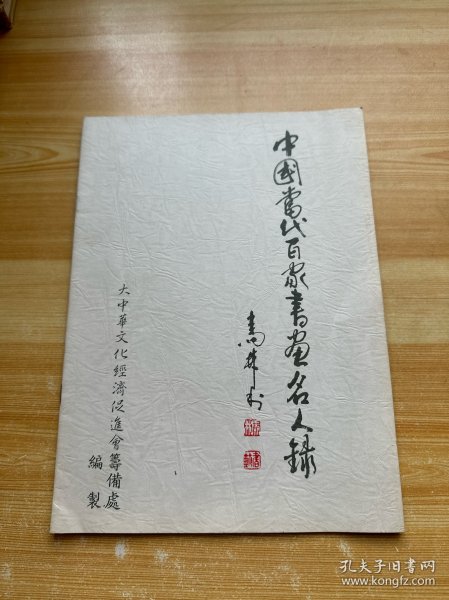 中國當代百家書畫名人錄
大中華文化經濟促進會籌備處
編製
孔夫子旧书网
www.kongfz.com